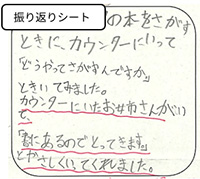 振り返りシート
の本をさがす
ときに、カウンターにいって
「どうやってさがすんですか」
ときいてみました。
カウンターにいたおばさんがい
て、
にあるのでとってきます」
とやさしくいってくれました。